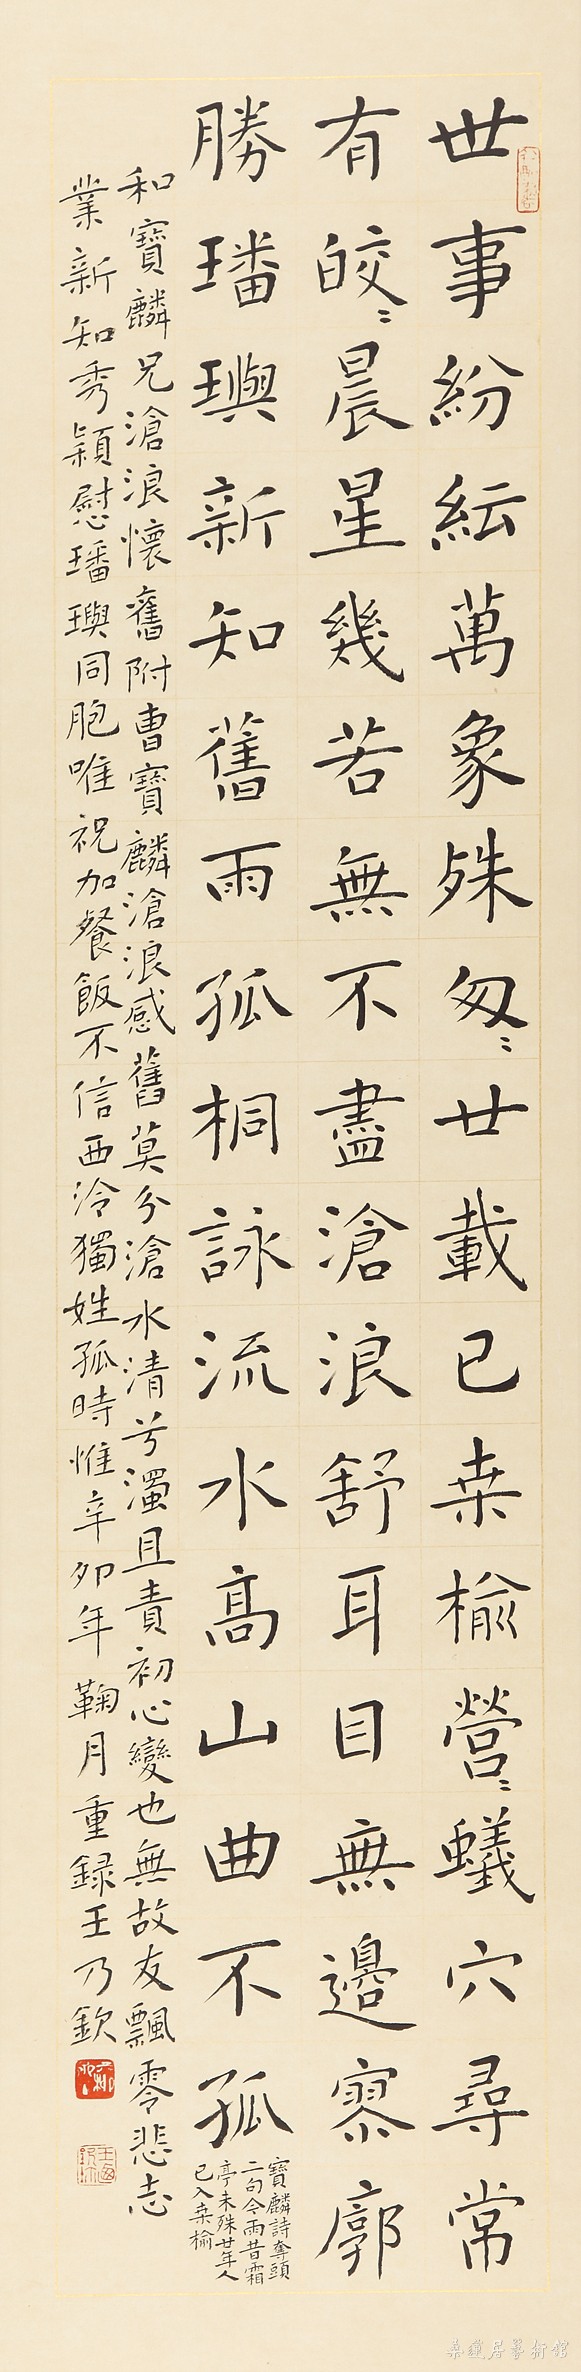 世事紛紜萬象殊匆〻廿載已桒榆營〻蟻穴尋常
有皎〻晨星幾若無不盡滄浪舒耳目無邊寥廓
勝璠璵新知舊雨孤桐詠流水高山曲不孤
寶麟詩奪頭
二句今雨昔霜
亭未殊廿年人
已入桒榆
和寶麟兄滄浪懷舊附曹寶麟滄浪感舊莫分滄水清兮濁且責初心變也無故友飄零悲志
業新知秀穎慰璠璵同胞唯祝加餐飯不信西泠獨姓孤時惟辛卯年鞠月重録王乃欽
桑蓮居藝術館